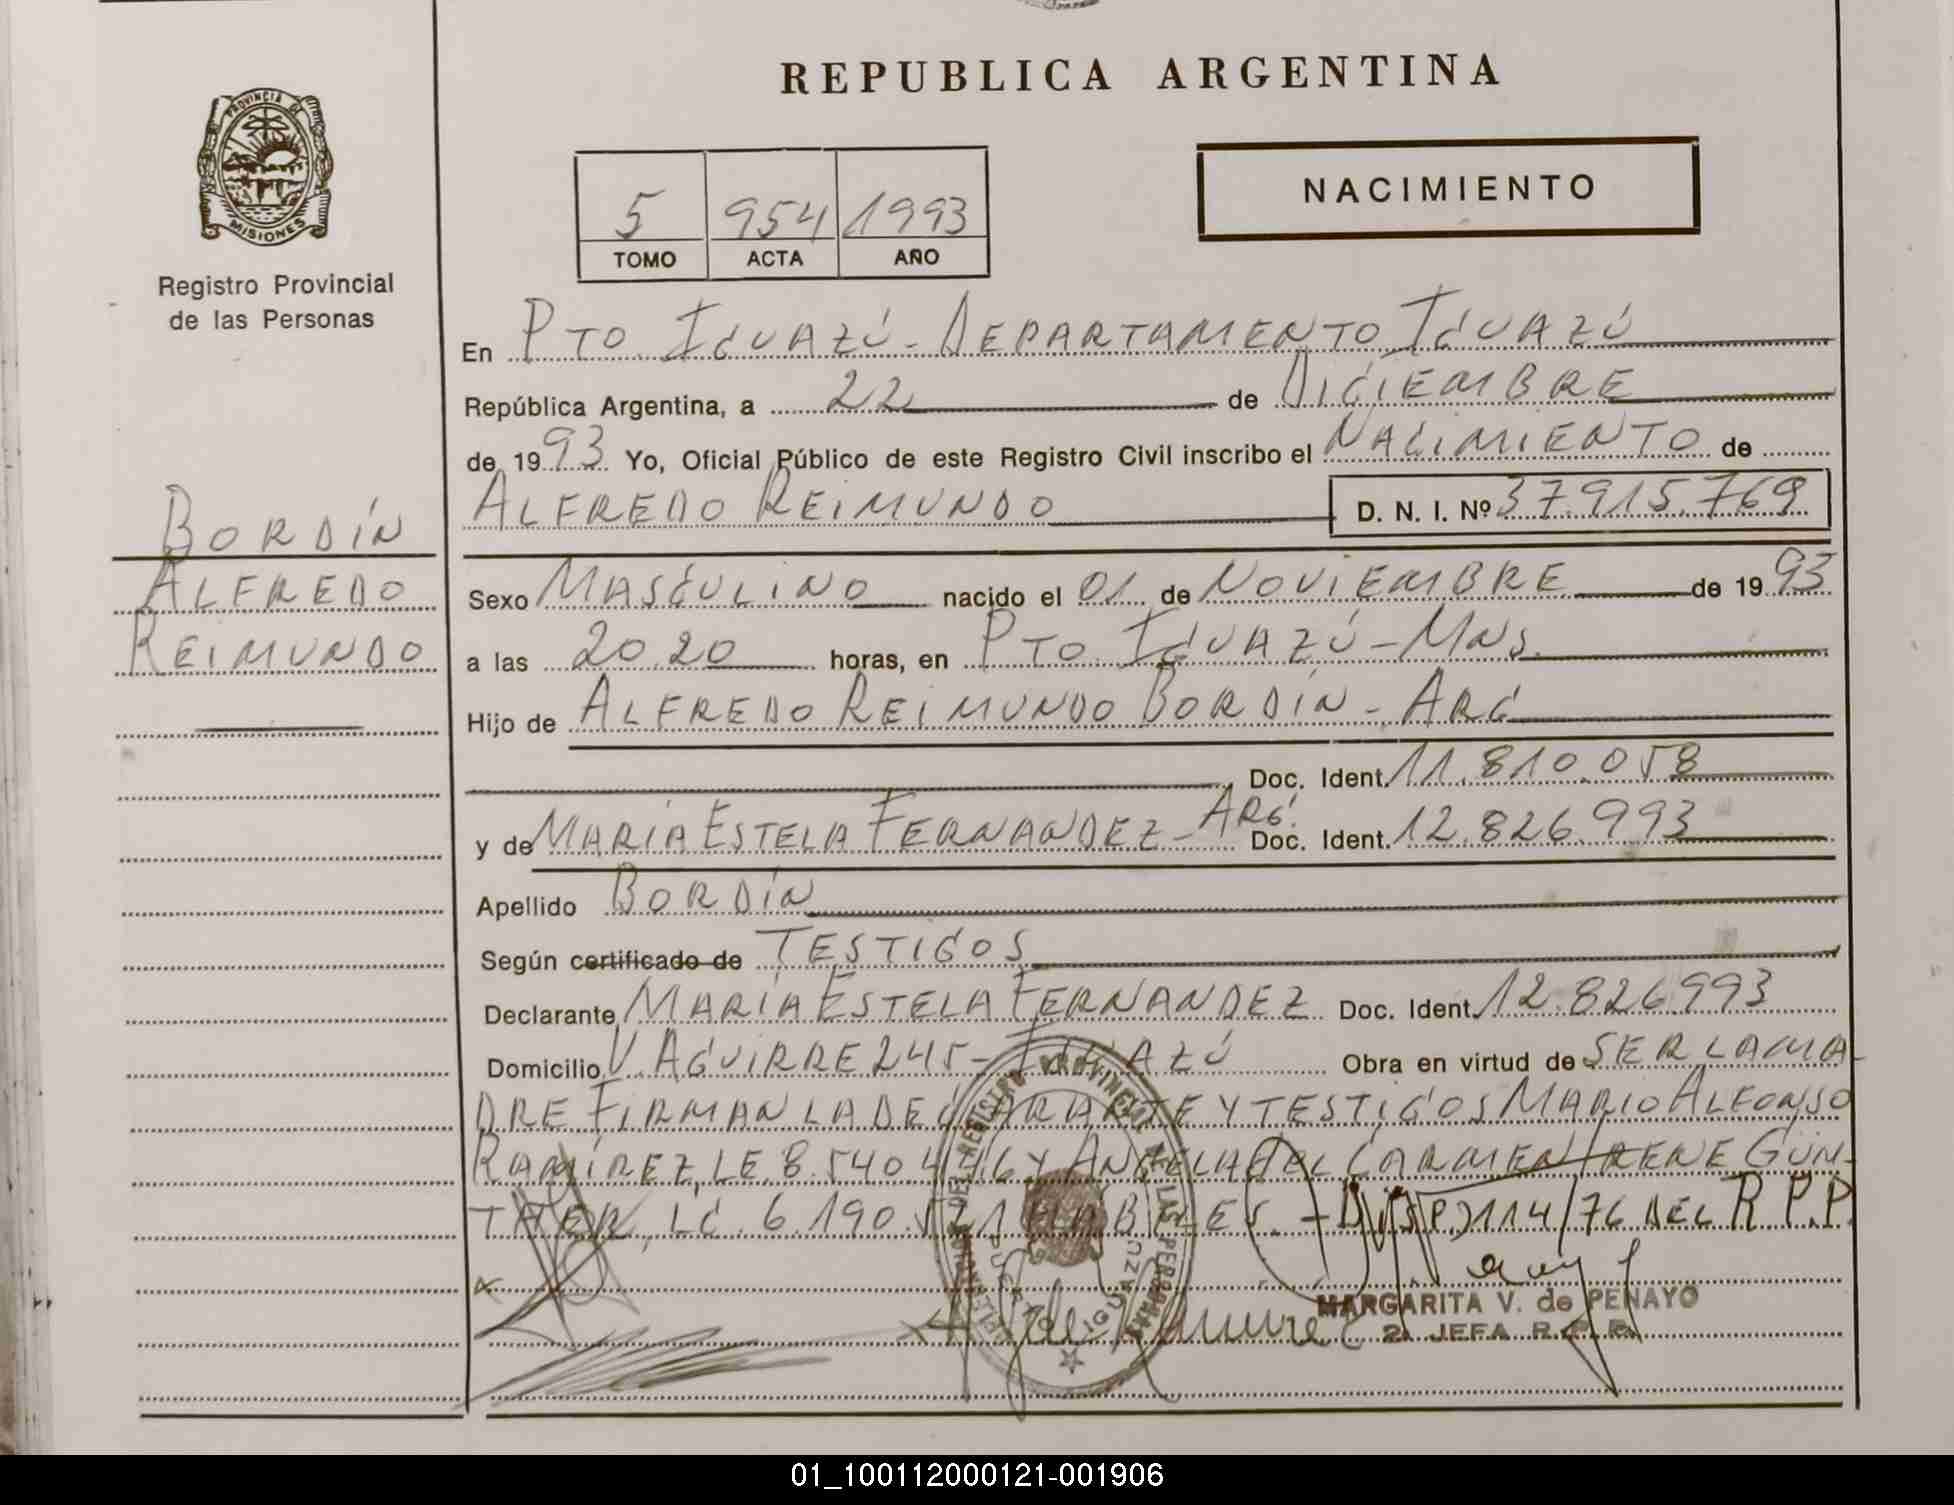 REPUBLICA ARGENTINA
PROVINCIA DE
MISIONES
Registro Provincial
de las Personas
5 954 1993
TOMO ACTA AÑO
NACIMIENTO
En PTO. IGUAZÚ - DEPARTAMENTO IGUAZÚ
República Argentina, a 22 de DICIEMBRE
de 1993 Yo, Oficial Público de este Registro Civil inscribo el NACIMIENTO de
ALFREDO REIMUNDO D. N. I. Nº 37.915.769
BORDÍN
ALFREDO
REIMUNDO
Sexo MASCULINO nacido el 01 de NOVIEMBRE de 1993
a las 20.20 horas, en PTO. IGUAZÚ - MNS.
Hijo de ALFREDO REIMUNDO BORDÍN - ARG
Doc. Ident. 11.810.058
y de MARÍA ESTELA FERNANDEZ - ARG. Doc. Ident. 12.826.993
Apellido BORDÍN
Según certificado de TESTIGOS
Declarante MARÍA ESTELA FERNANDEZ Doc. Ident. 12.826.993
Domicilio V. AGUIRRE 245 - IGUAZÚ Obra en virtud de SER LA MA-
DRE FIRMAN LA DECLARANTE Y TESTIGOS MARIO ALFONSO
RAMÍREZ, LE. 8.540.476 Y ANGELA DEL CARMEN IRENE GÜN-
THER, LC. 6.190.521 HABILES. - DISP. 114/76 DEL R.P.P.
REGISTRO PROVINCIAL DE LAS PERSONAS
PUERTO IGUAZU
MARGARITA V. de PENAYO
2. JEFA R.P.P.
01_100112000121-001906